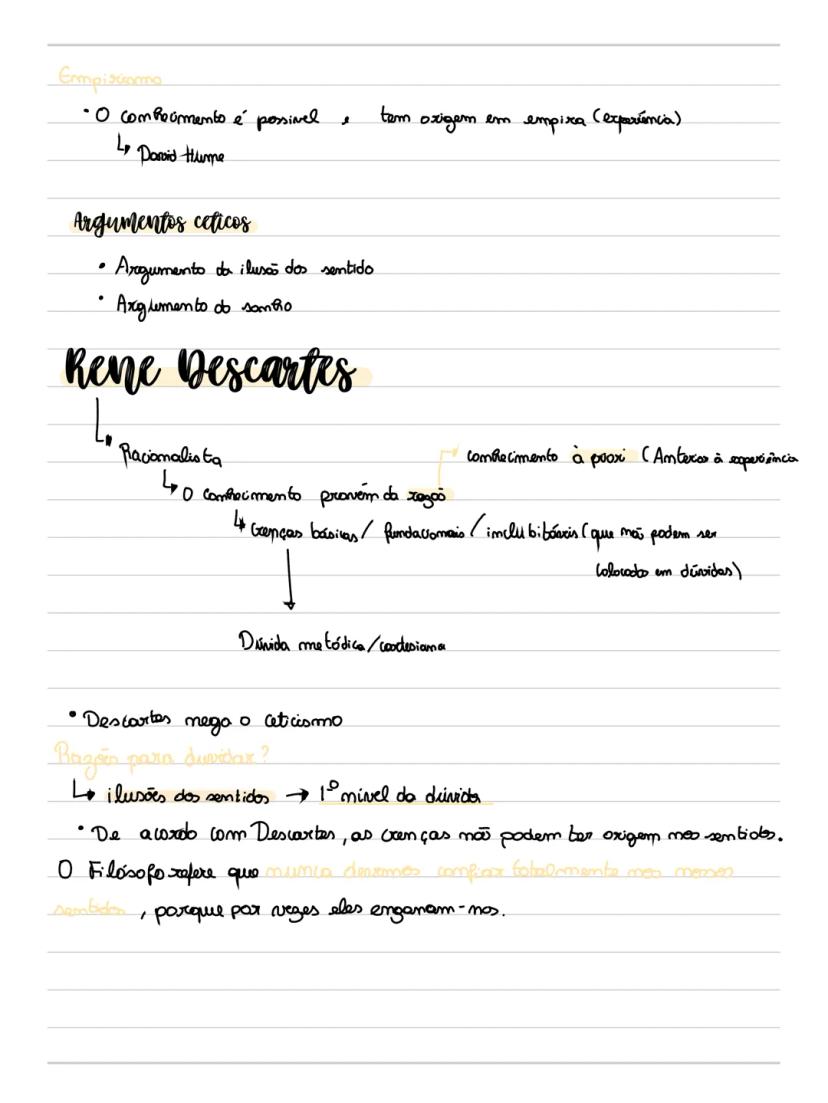 Empirismo
• O conhecimento é possivel , tem origem em empira (experiência)
↳ David Hume
Argumentos ceticos
• Argumento da ilusão dos sentido
• Argumento do sonho
Rene Descartes
↳ Racionalista
conhecimento à priori (Anterior à experiência
↳ O conhecimento provém da razão
↳ Crenças básicas / fundacionais / indubitáveis (que não podem ser
colocadas em dúvidas)
Dúvida metódica/cartesiana
• Descartes nega o ceticismo
Razões para duvidar?
↳ ilusões dos sentidos → 1º nível da dúvida
• De acordo com Descartes, as crenças não podem ter origem nos sentidos.
O Filósofo refere que nunca devemos confiar totalmente nos nossos
sentidos , porque por vezes eles enganam-nos.